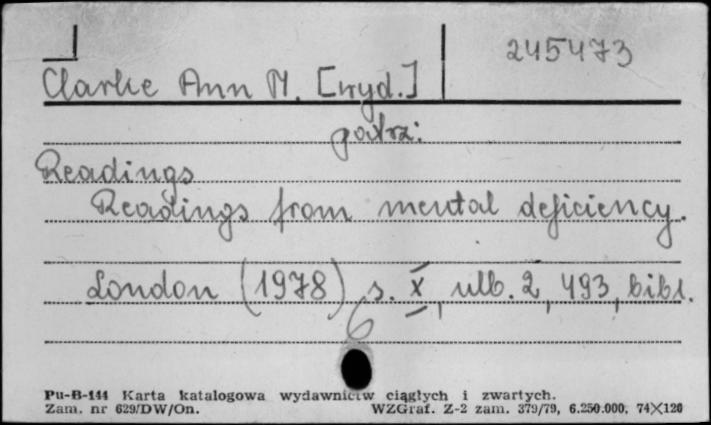 245473
Clarke Ann M. [wyd.]
patrz:
Readings
Readings from mental deficiency.
London (1978) s. X, ulb. 2, 493, bibl.
6
Pu-B-144 Karta katalogowa wydawnictw ciągłych i zwartych.
Zam. nr 629/DW/On. WZGraf. Z-2 zam. 379/79, 6.250.000, 74X120